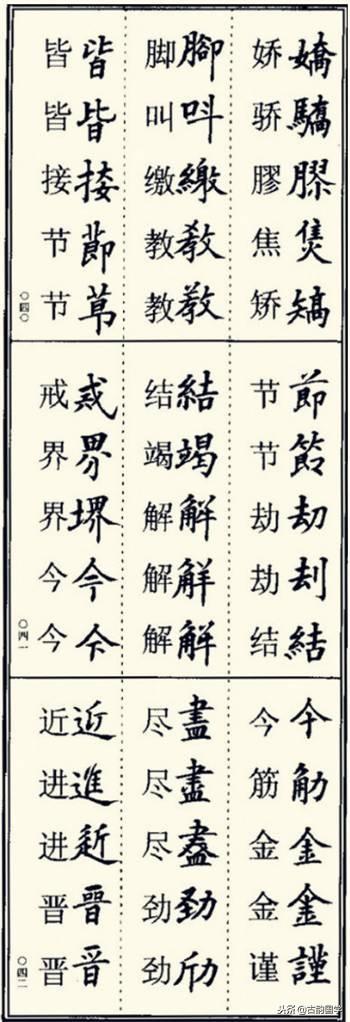 嬌驕膠焦矯
娇骄膠焦矫
腳叫繳教教
脚叫缴教教
皆皆接節莭
皆皆接节节
〇四〇
節節劫刦結
节节劫劫结
結竭解觧解
结竭解解解
戒界堺今今
戒界界今今
〇四一
今觔金金謹
今筋金金谨
盡盡盡勁
尽尽尽劲劲
近進晉晋
近进进晋晋
〇四二
头条@古韵国学